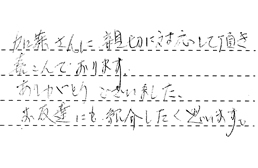 加藤さんに親切に対応して頂き
喜こんでおります。
ありがとうございました。
お友達にも紹介したく思います。